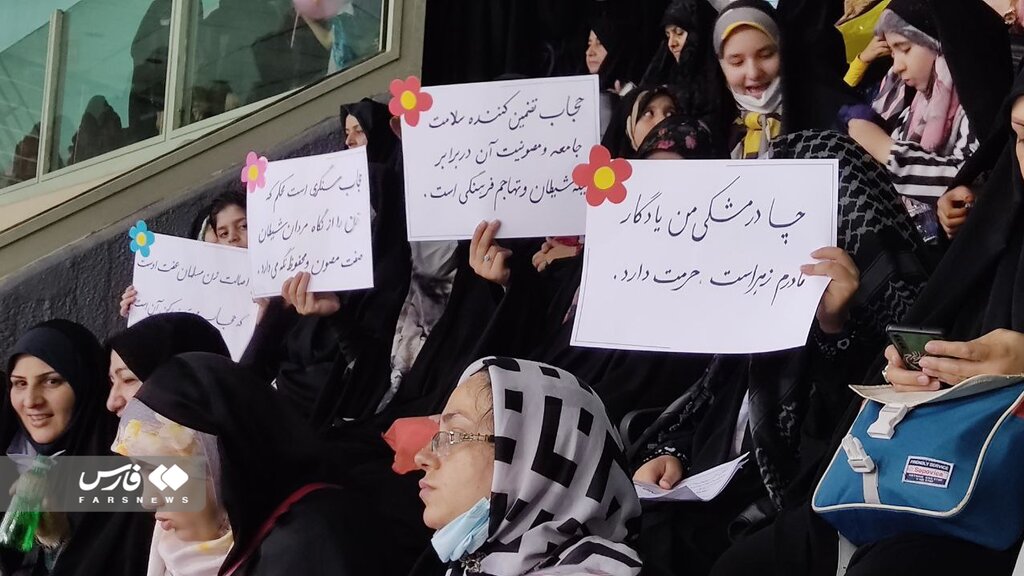 حجاب تضمین کننده سلامت
جامعه و مصونیت آن در برابر
شیطان و تهاجم فرهنگی است .
چادر مشکی من یادگار
مادرم زهراست ، حرمت دارد .
حجاب سنگری است محکم که
را از نگاه مردان شیطان
صفت مصون و محفوظ نگه می دارد .
اصالت زن مسلمان عفت اوست
که
فارس
FARSNEWS